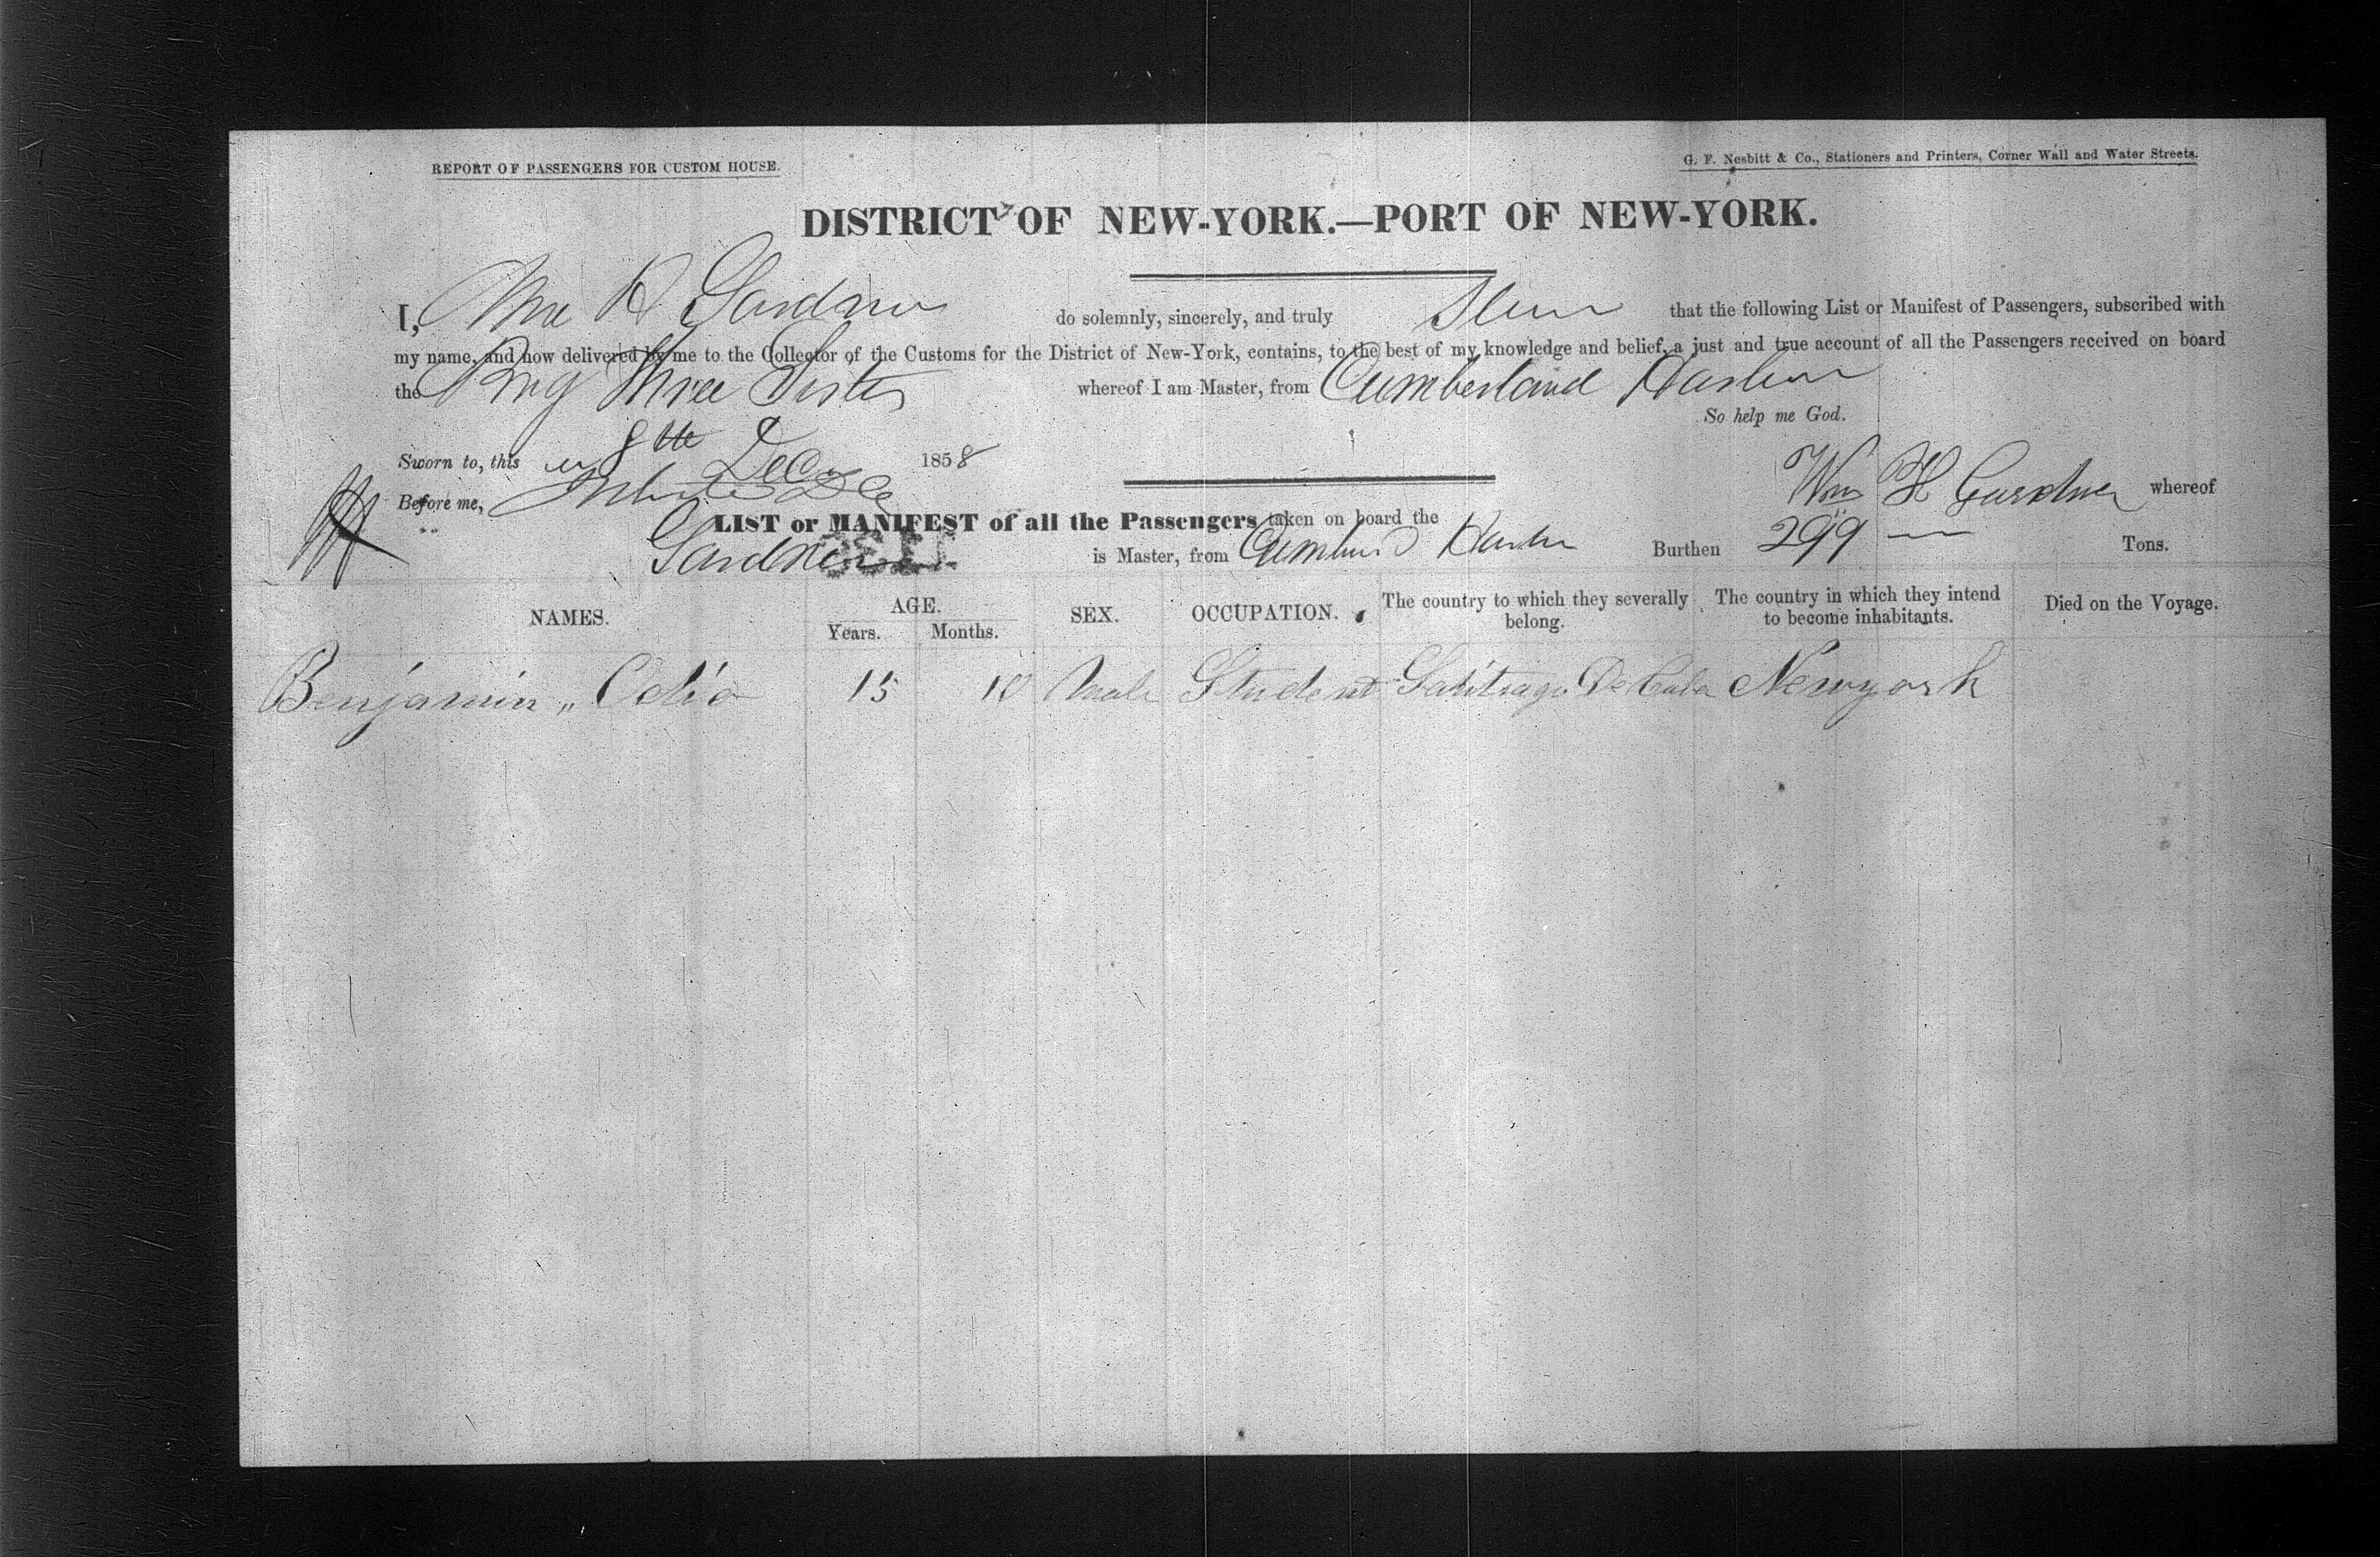 REPORT OF PASSENGERS FOR CUSTOM HOUSE.
G. F. Nesbitt & Co., Stationers and Printers, Corner Wall and Water Streets.
DISTRICT OF NEW-YORK.—PORT OF NEW-YORK.
I, Wm H Gardner do solemnly, sincerely, and truly that the following List or Manifest of Passengers, subscribed with
my name, and now delivered by me to the Collector of the Customs for the District of New-York, contains, to the best of my knowledge and belief, a just and true account of all the Passengers received on board
the Brig Three Sisters whereof I am Master, from Cumberland Harbour
So help me God.
Sworn to, this 8th Dec 1858
Before me,
Wm H Gardner whereof
LIST or MANIFEST of all the Passengers taken on board the
Gardner is Master, from Harbour Burthen 299 Tons.
NAMES. AGE. Years. Months. SEX. OCCUPATION. The country to which they severally belong. The country in which they intend to become inhabitants. Died on the Voyage.
Benjamin „ Odio 15 10 Male Student Santiago De Cuba Newyork